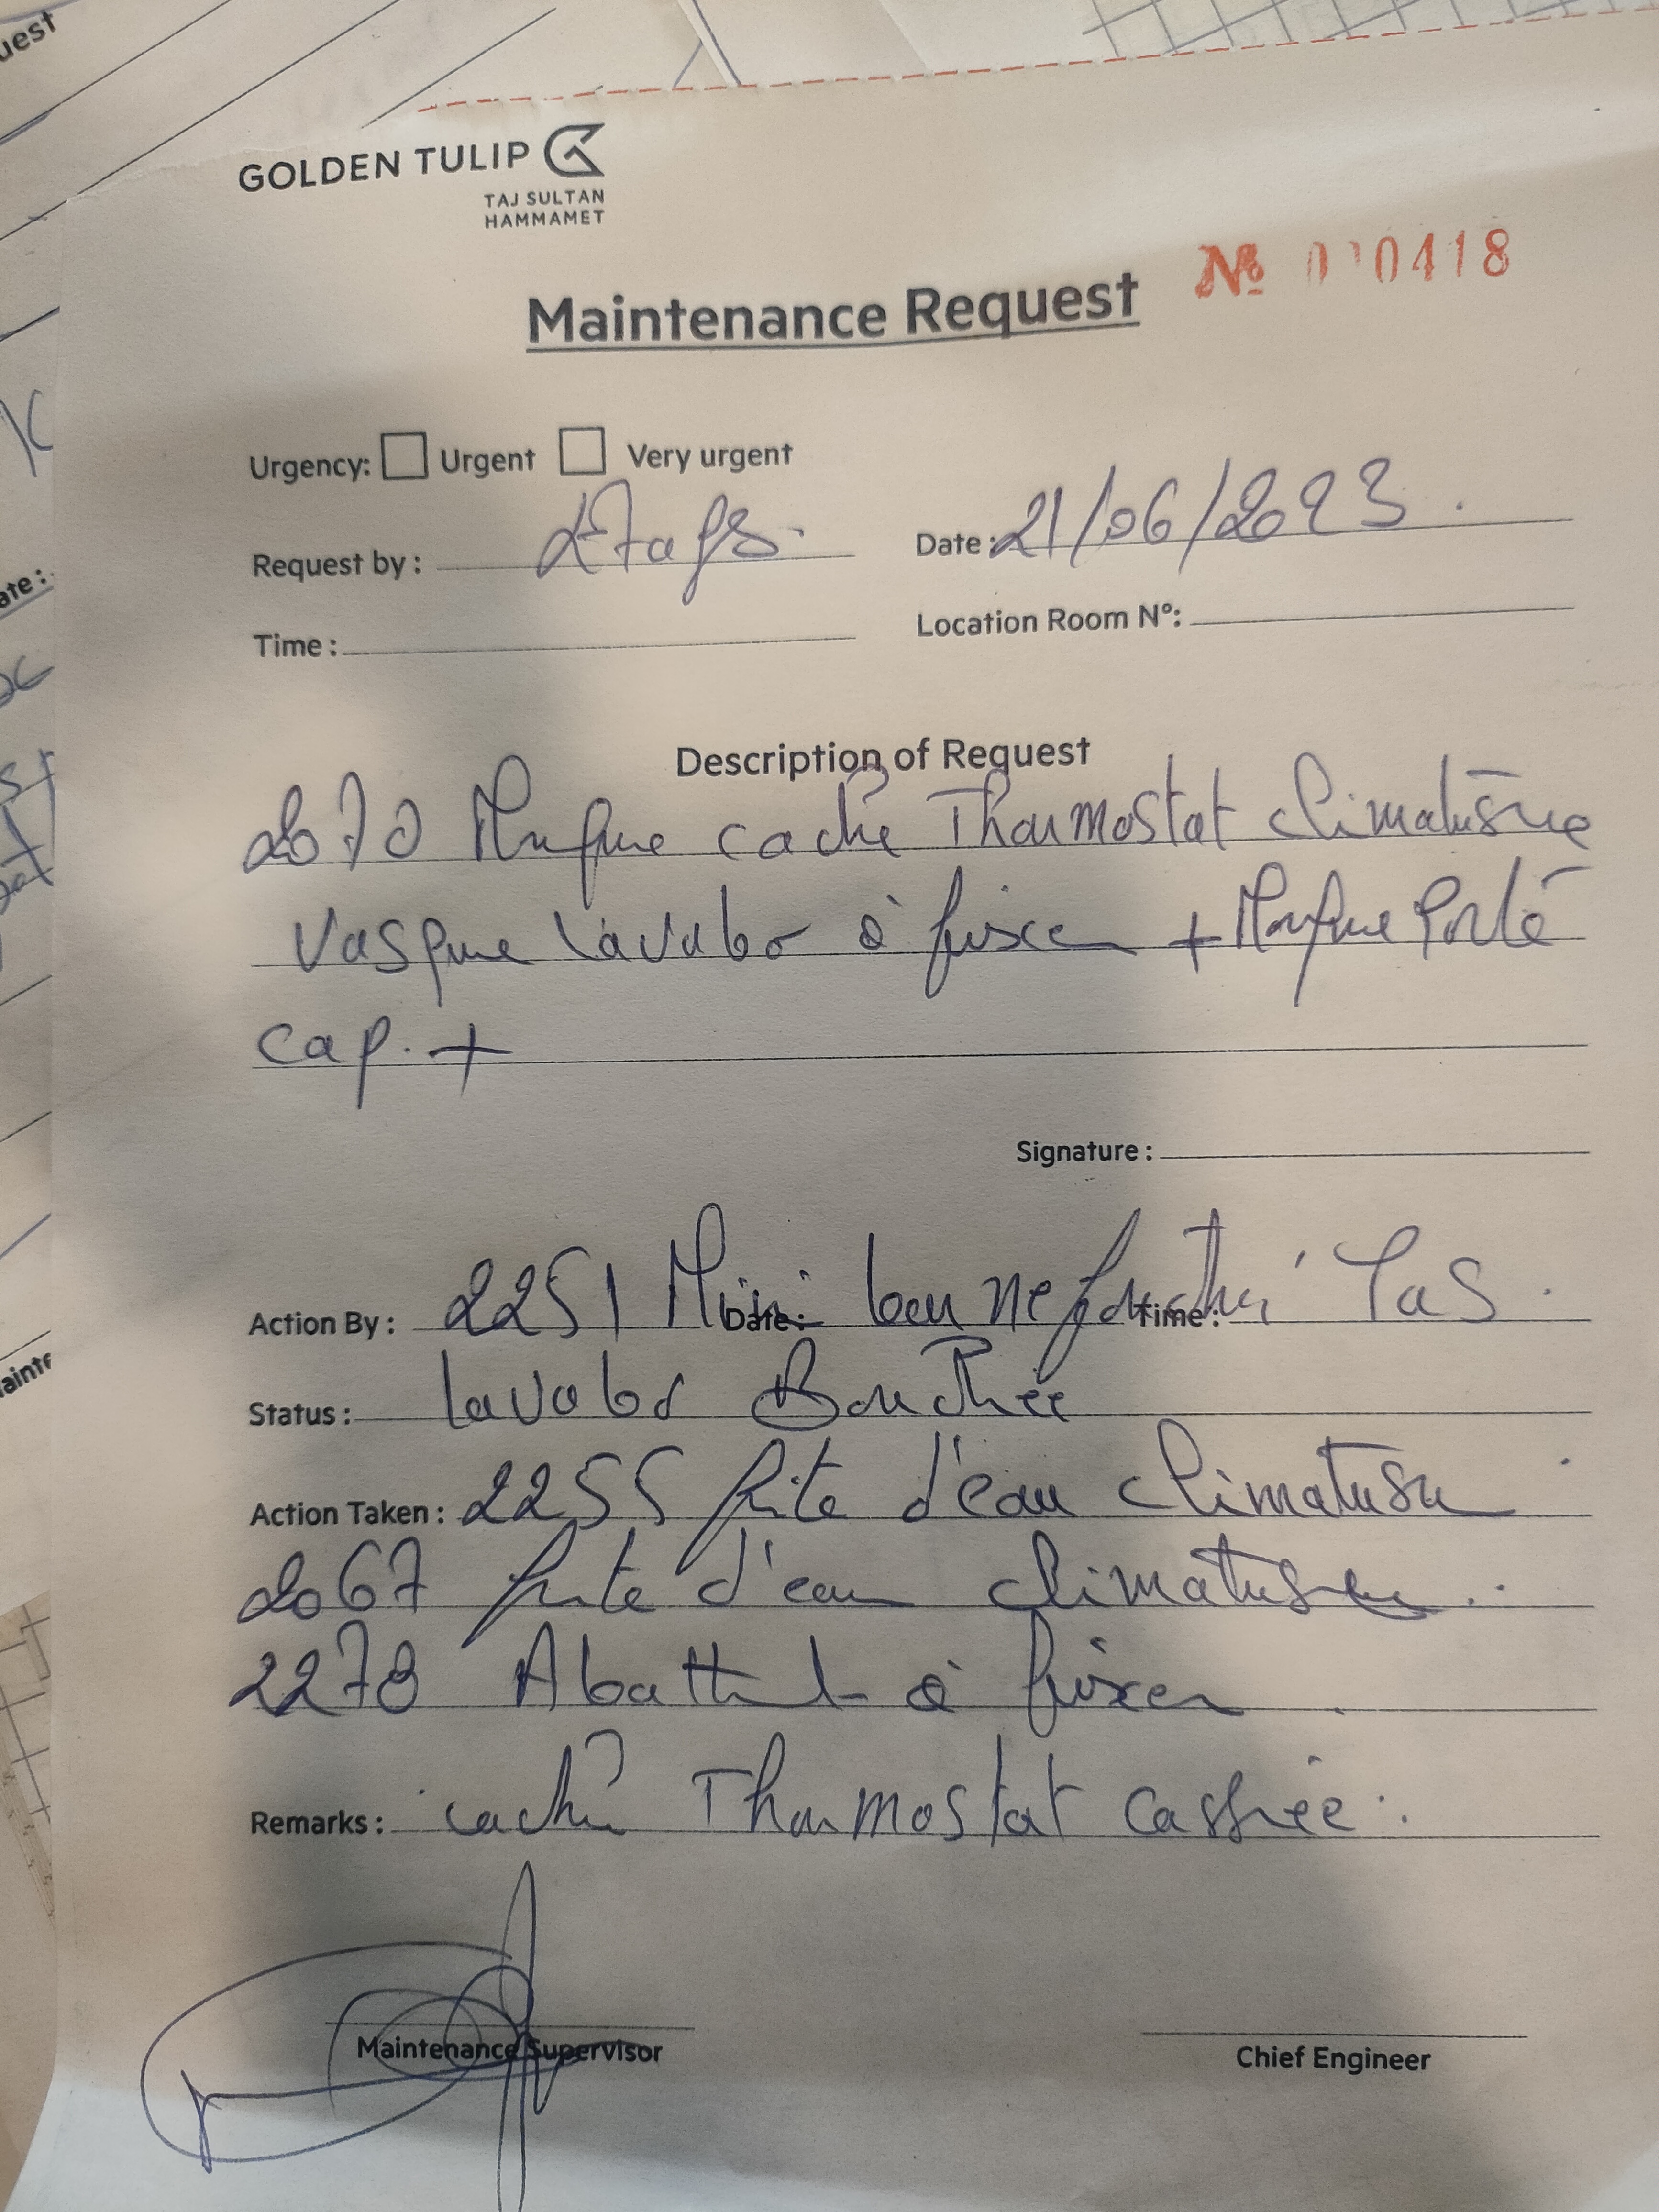 uest
GOLDEN TULIP
TAJ SULTAN
HAMMAMET
Maintenance Request
Urgency: Urgent Very urgent
Request by : Etages. Date : 21/06/2023.
Time : Location Room N°:
Description of Request
2070 Manque cache Thermostat climatiseur
Vasque lavabo à fixer + Manque Porte
cap. +
Signature :
Action By : 2251 Mini bar ne Date: Time : Pas.
Status : lavabo Bouchée
Action Taken : 2255 fuite d'eau climatiseur
2067 fuite d'eau climatiseur.
2278 Abattant à fixer
Remarks : cache Thermostat cassée.
Maintenance Supervisor
Chief Engineer